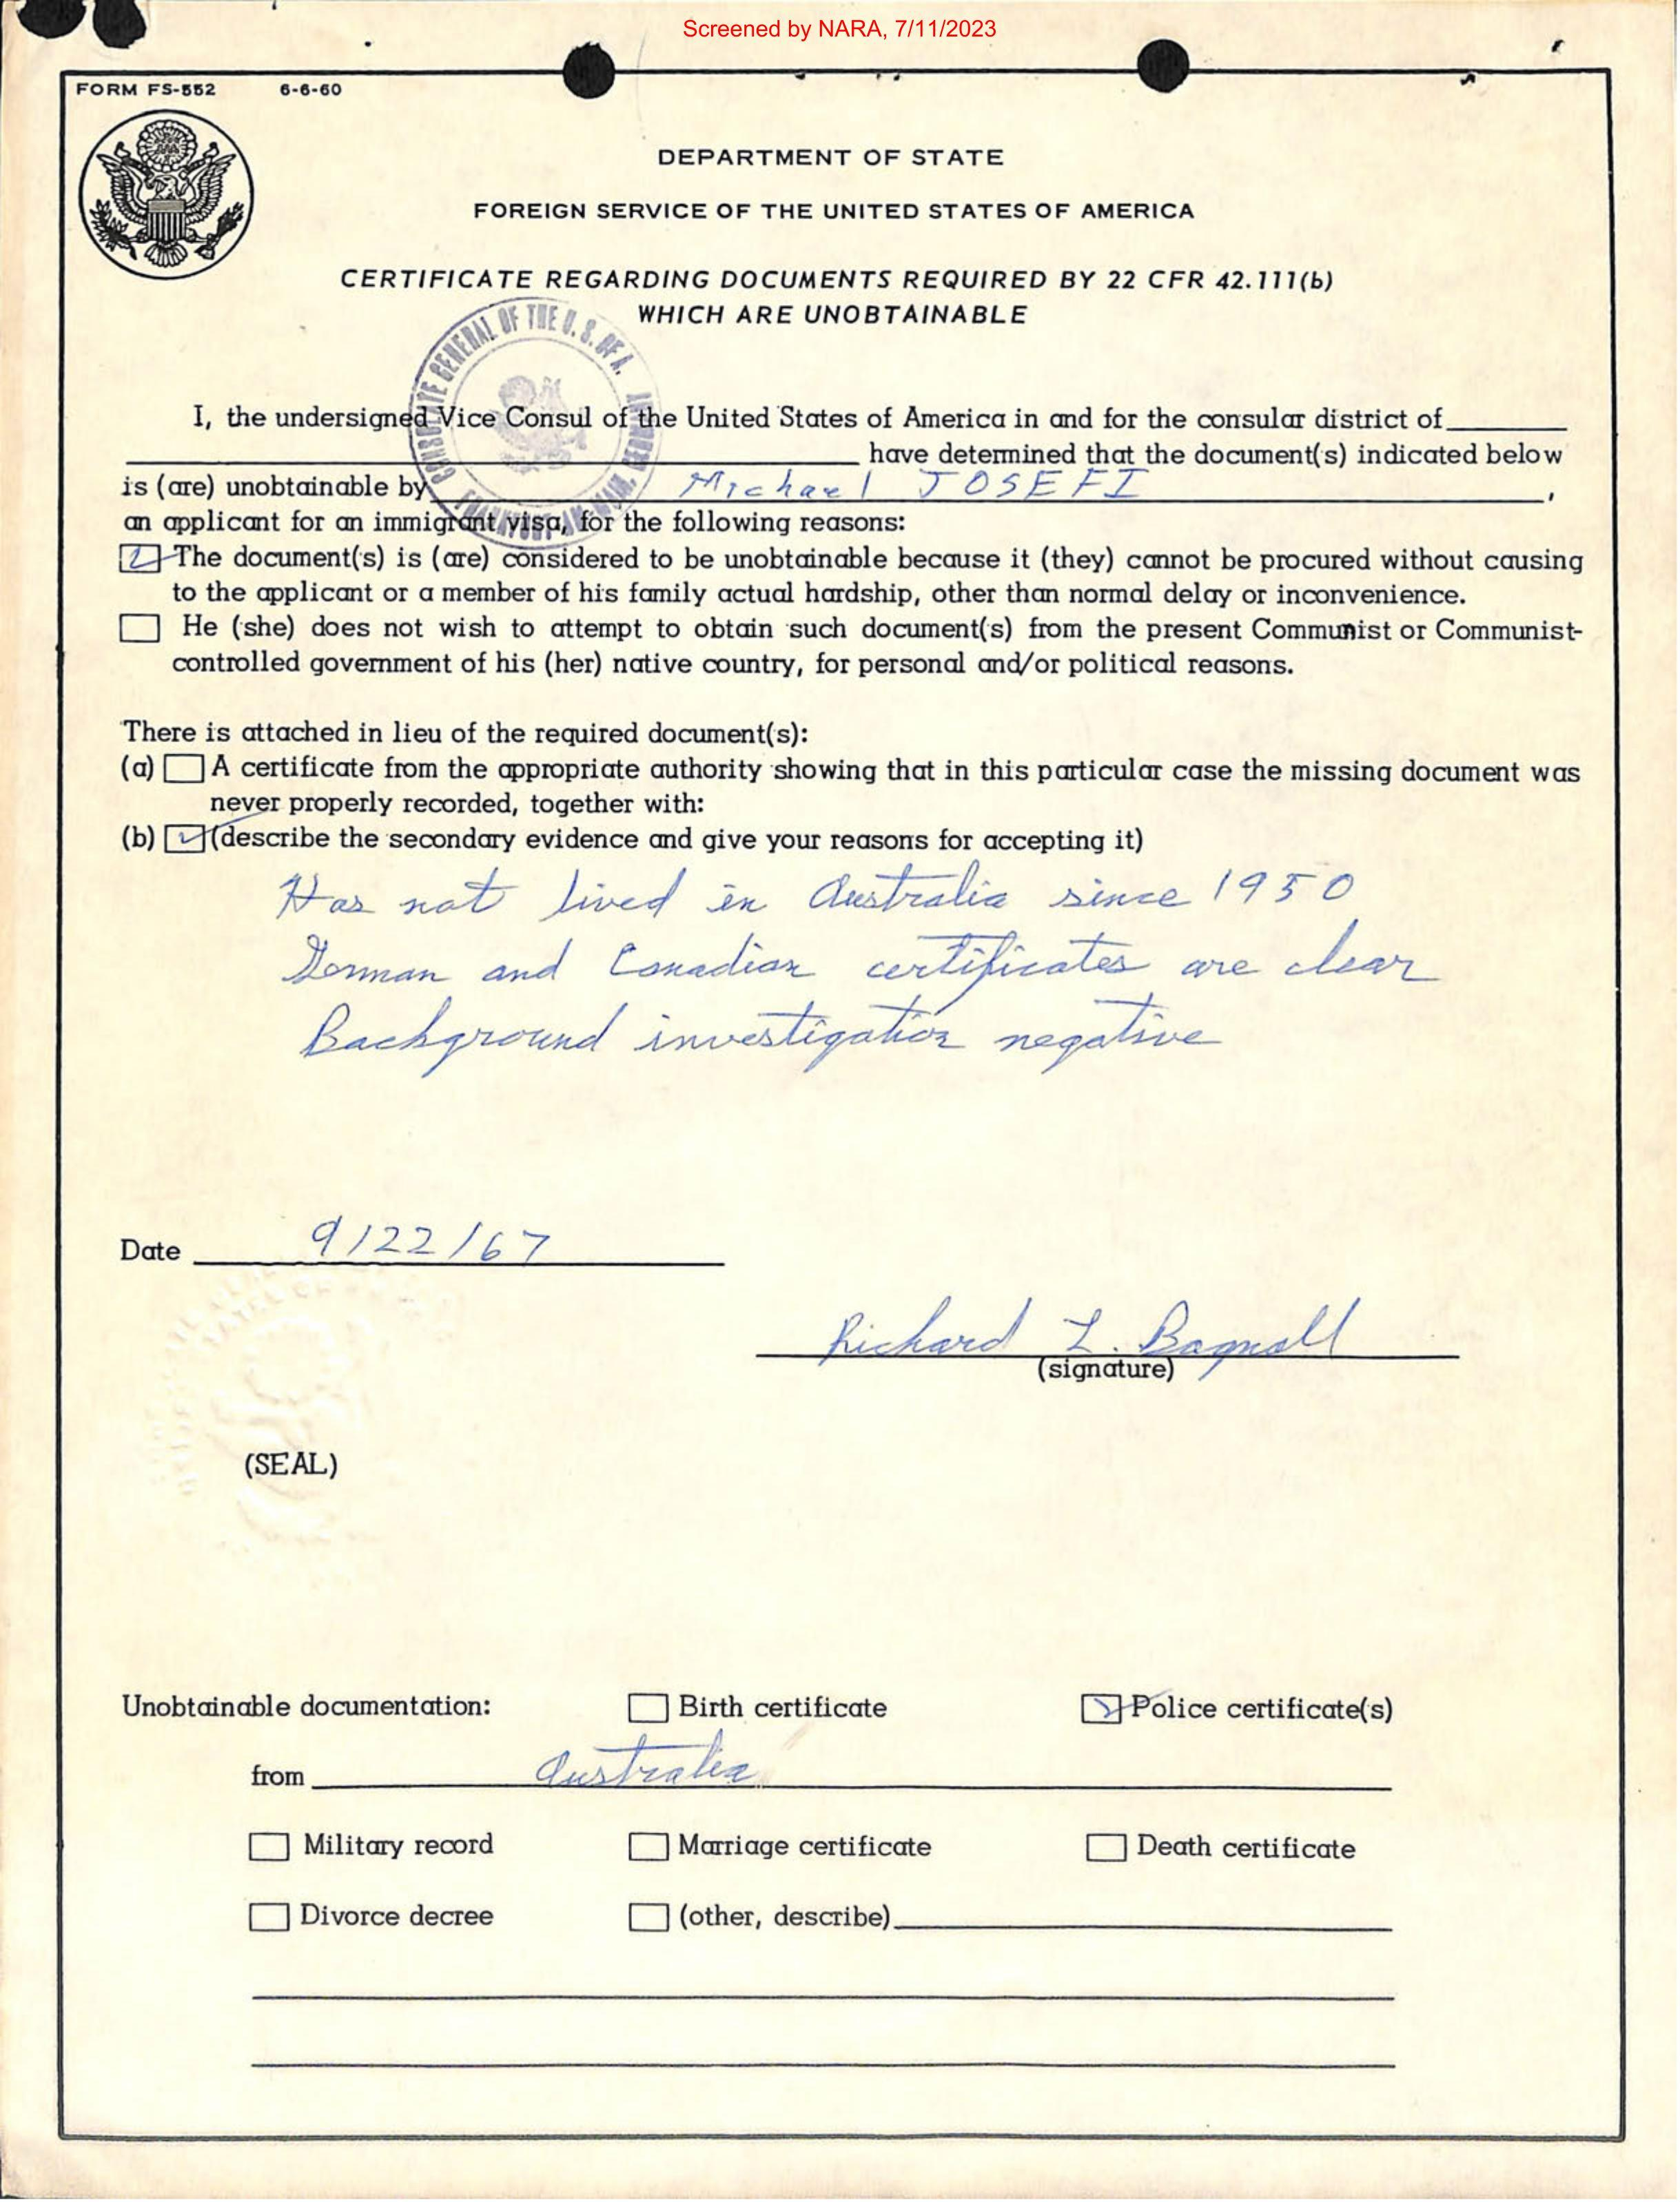 Screened by NARA, 7/11/2023
FORM FS-552 6-6-60
DEPARTMENT OF STATE
FOREIGN SERVICE OF THE UNITED STATES OF AMERICA
CERTIFICATE REGARDING DOCUMENTS REQUIRED BY 22 CFR 42.111(b)
WHICH ARE UNOBTAINABLE
CONSULATE GENERAL OF THE U.S. OF A.
FRANKFURT-AM-MAIN, GERMANY
I, the undersigned Vice Consul of the United States of America in and for the consular district of
have determined that the document(s) indicated below
is (are) unobtainable by Michael JOSEFI,
an applicant for an immigrant visa, for the following reasons:
The document(s) is (are) considered to be unobtainable because it (they) cannot be procured without causing
to the applicant or a member of his family actual hardship, other than normal delay or inconvenience.
He (she) does not wish to attempt to obtain such document(s) from the present Communist or Communist-
controlled government of his (her) native country, for personal and/or political reasons.
There is attached in lieu of the required document(s):
(a) A certificate from the appropriate authority showing that in this particular case the missing document was
never properly recorded, together with:
(b) (describe the secondary evidence and give your reasons for accepting it)
Has not lived in Australia since 1950
German and Canadian certificates are clear
Background investigation negative
Date 9/22/67
Richard L. Bagnall
(signature)
(SEAL)
Unobtainable documentation: Birth certificate Police certificate(s)
from Australia
Military record Marriage certificate Death certificate
Divorce decree (other, describe)